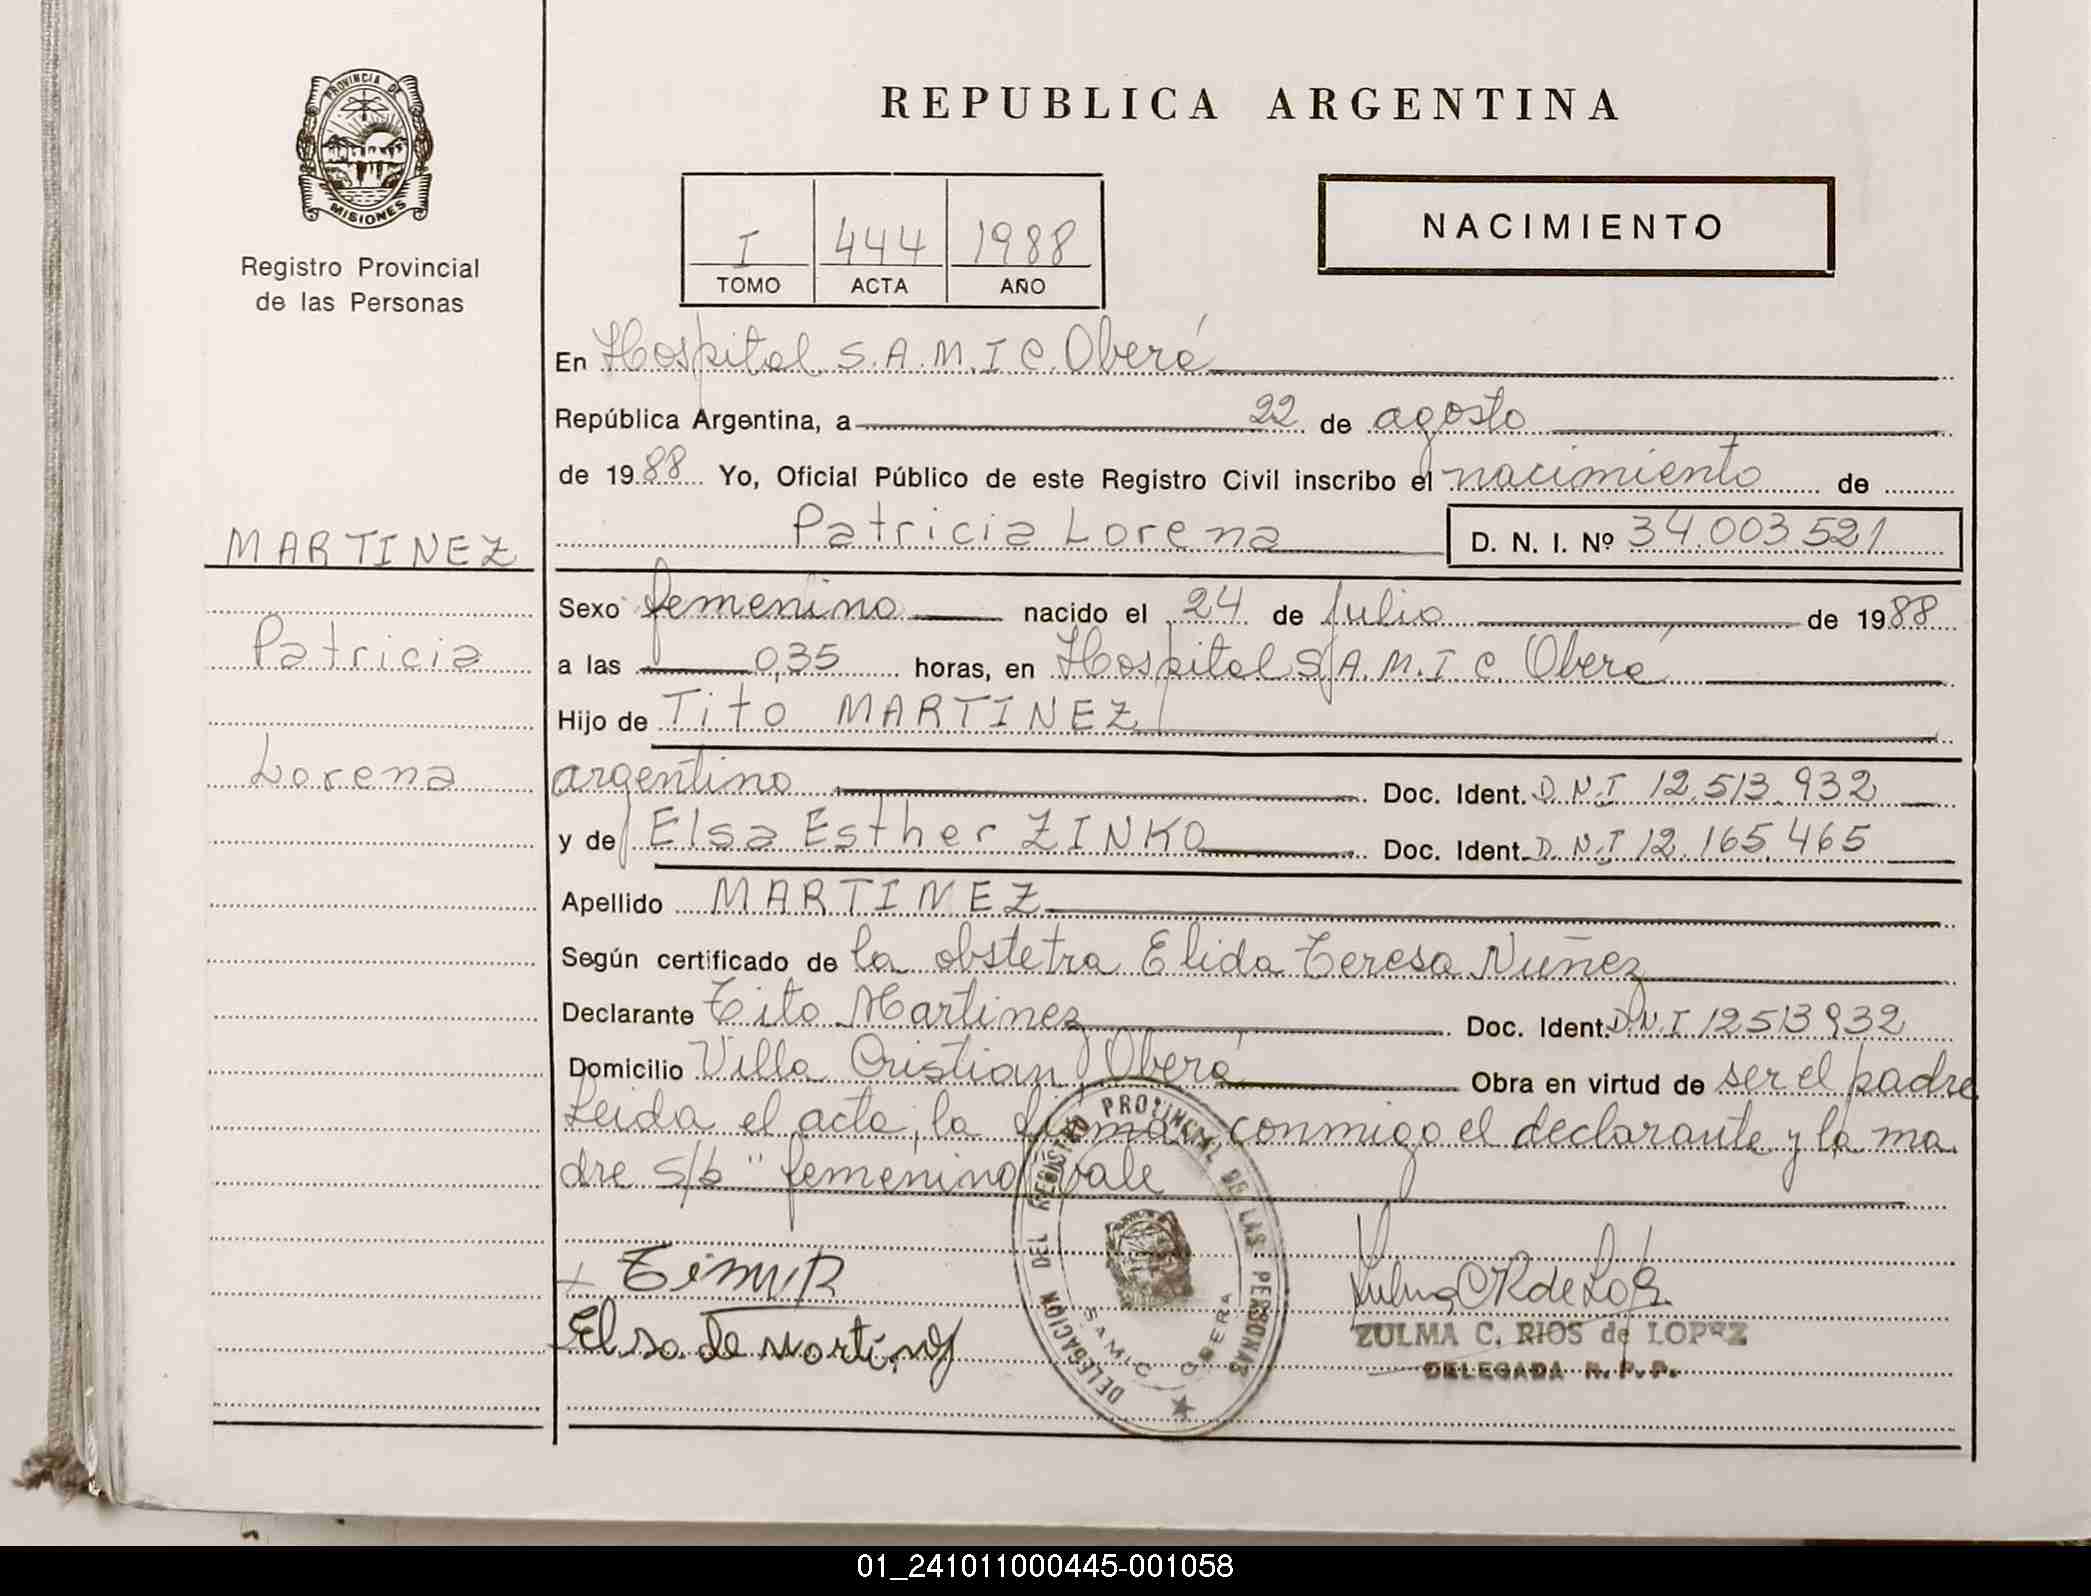 PROVINCIA DE
MISIONES
Registro Provincial
de las Personas
MARTINEZ
Patricia
Lorena
REPUBLICA ARGENTINA
I 444 1988
TOMO ACTA AÑO
NACIMIENTO
En Hospital S.A.M.I C. Oberá
República Argentina, a 22 de agosto
de 1988 Yo, Oficial Público de este Registro Civil inscribo el nacimiento de
Patricia Lorena D. N. I. Nº 34.003.521
Sexo femenino nacido el 24 de julio de 1988
a las 0,35 horas, en Hospital S.A.M.I C. Oberá
Hijo de Tito MARTINEZ
argentino Doc. Ident. D.N.I 12.513.932
y de Elsa Esther ZINKO Doc. Ident. D.N.I 12.165.465
Apellido MARTINEZ
Según certificado de la obstetra Elida Teresa Nuñez
Declarante Tito Martinez Doc. Ident. D.N.I 12513932
Domicilio Villa Cristian Oberá Obra en virtud de ser el padre
Leida el acta, la firman conmigo el declarante y la ma
dre s/b "femenino" vale
Elsa de Martinez
DELEGACION DEL REGISTRO PROVINCIAL DE LAS PERSONAS
SAMIC OBERA
ZULMA C. RIOS de LOPEZ
DELEGADA R. P. P.
01_241011000445-001058